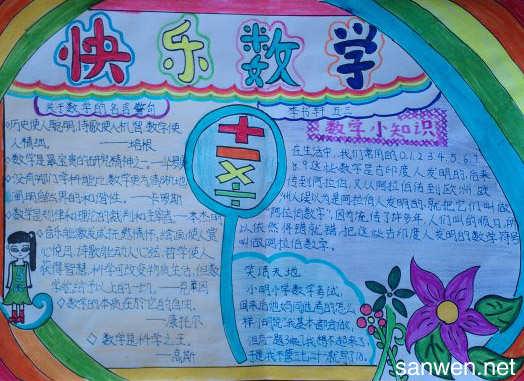 快乐数学
关于数学的名言警句
李书轩 五三
◇历史使人聪明,诗歌使人机智,数学使
人精细。 ——培根
◇数学是最宝贵的研究精神之一。——华罗庚
◇没有哪门学科能比数学更为清晰地
阐明自然界的和谐性。——卡罗斯
◇数学是规律和理论的裁判和主宰者。——本杰明
◇音乐能激发或抚慰情怀,绘画使人赏
心悦目,诗歌能动人心弦,哲学使人
获得智慧,科学可改变物质生活,但数
学能给予以上的一切。——克莱因
◇数学的本质在于它的自由。
——康托尔
◇数学是科学之王。
——高斯
+ - × ÷
数学小知识
在生活中,我们常用的0.1.2.3.4.5.6.7
8.9这些数字是古印度人发明的,后来
传到阿拉伯,又从阿拉伯传到欧洲,欧
洲人误以为是阿拉伯人发明的,就把它们叫做
"阿拉伯数字",因为流传了许多年,人们叫的顺口,所
以依然将错就错,把这些古印度人发明的数学符号
叫做阿拉伯数字。
笑话天地
小明小学数学考试,
回来后他妈问他考的怎么
样,小明说:"我基本都会做,
但有一题3乘7我想不起来了,